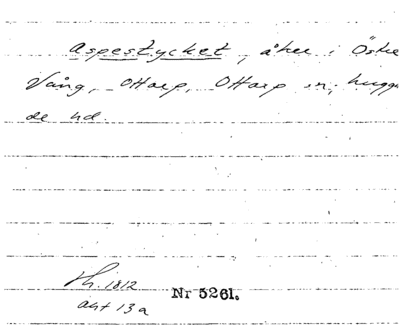 Aspestycket, åker i Östre
Vång, Ottarp, Ottarp sn, Luggu
de hd.
Sk. 1812
akt 13 a
Nr 5261.